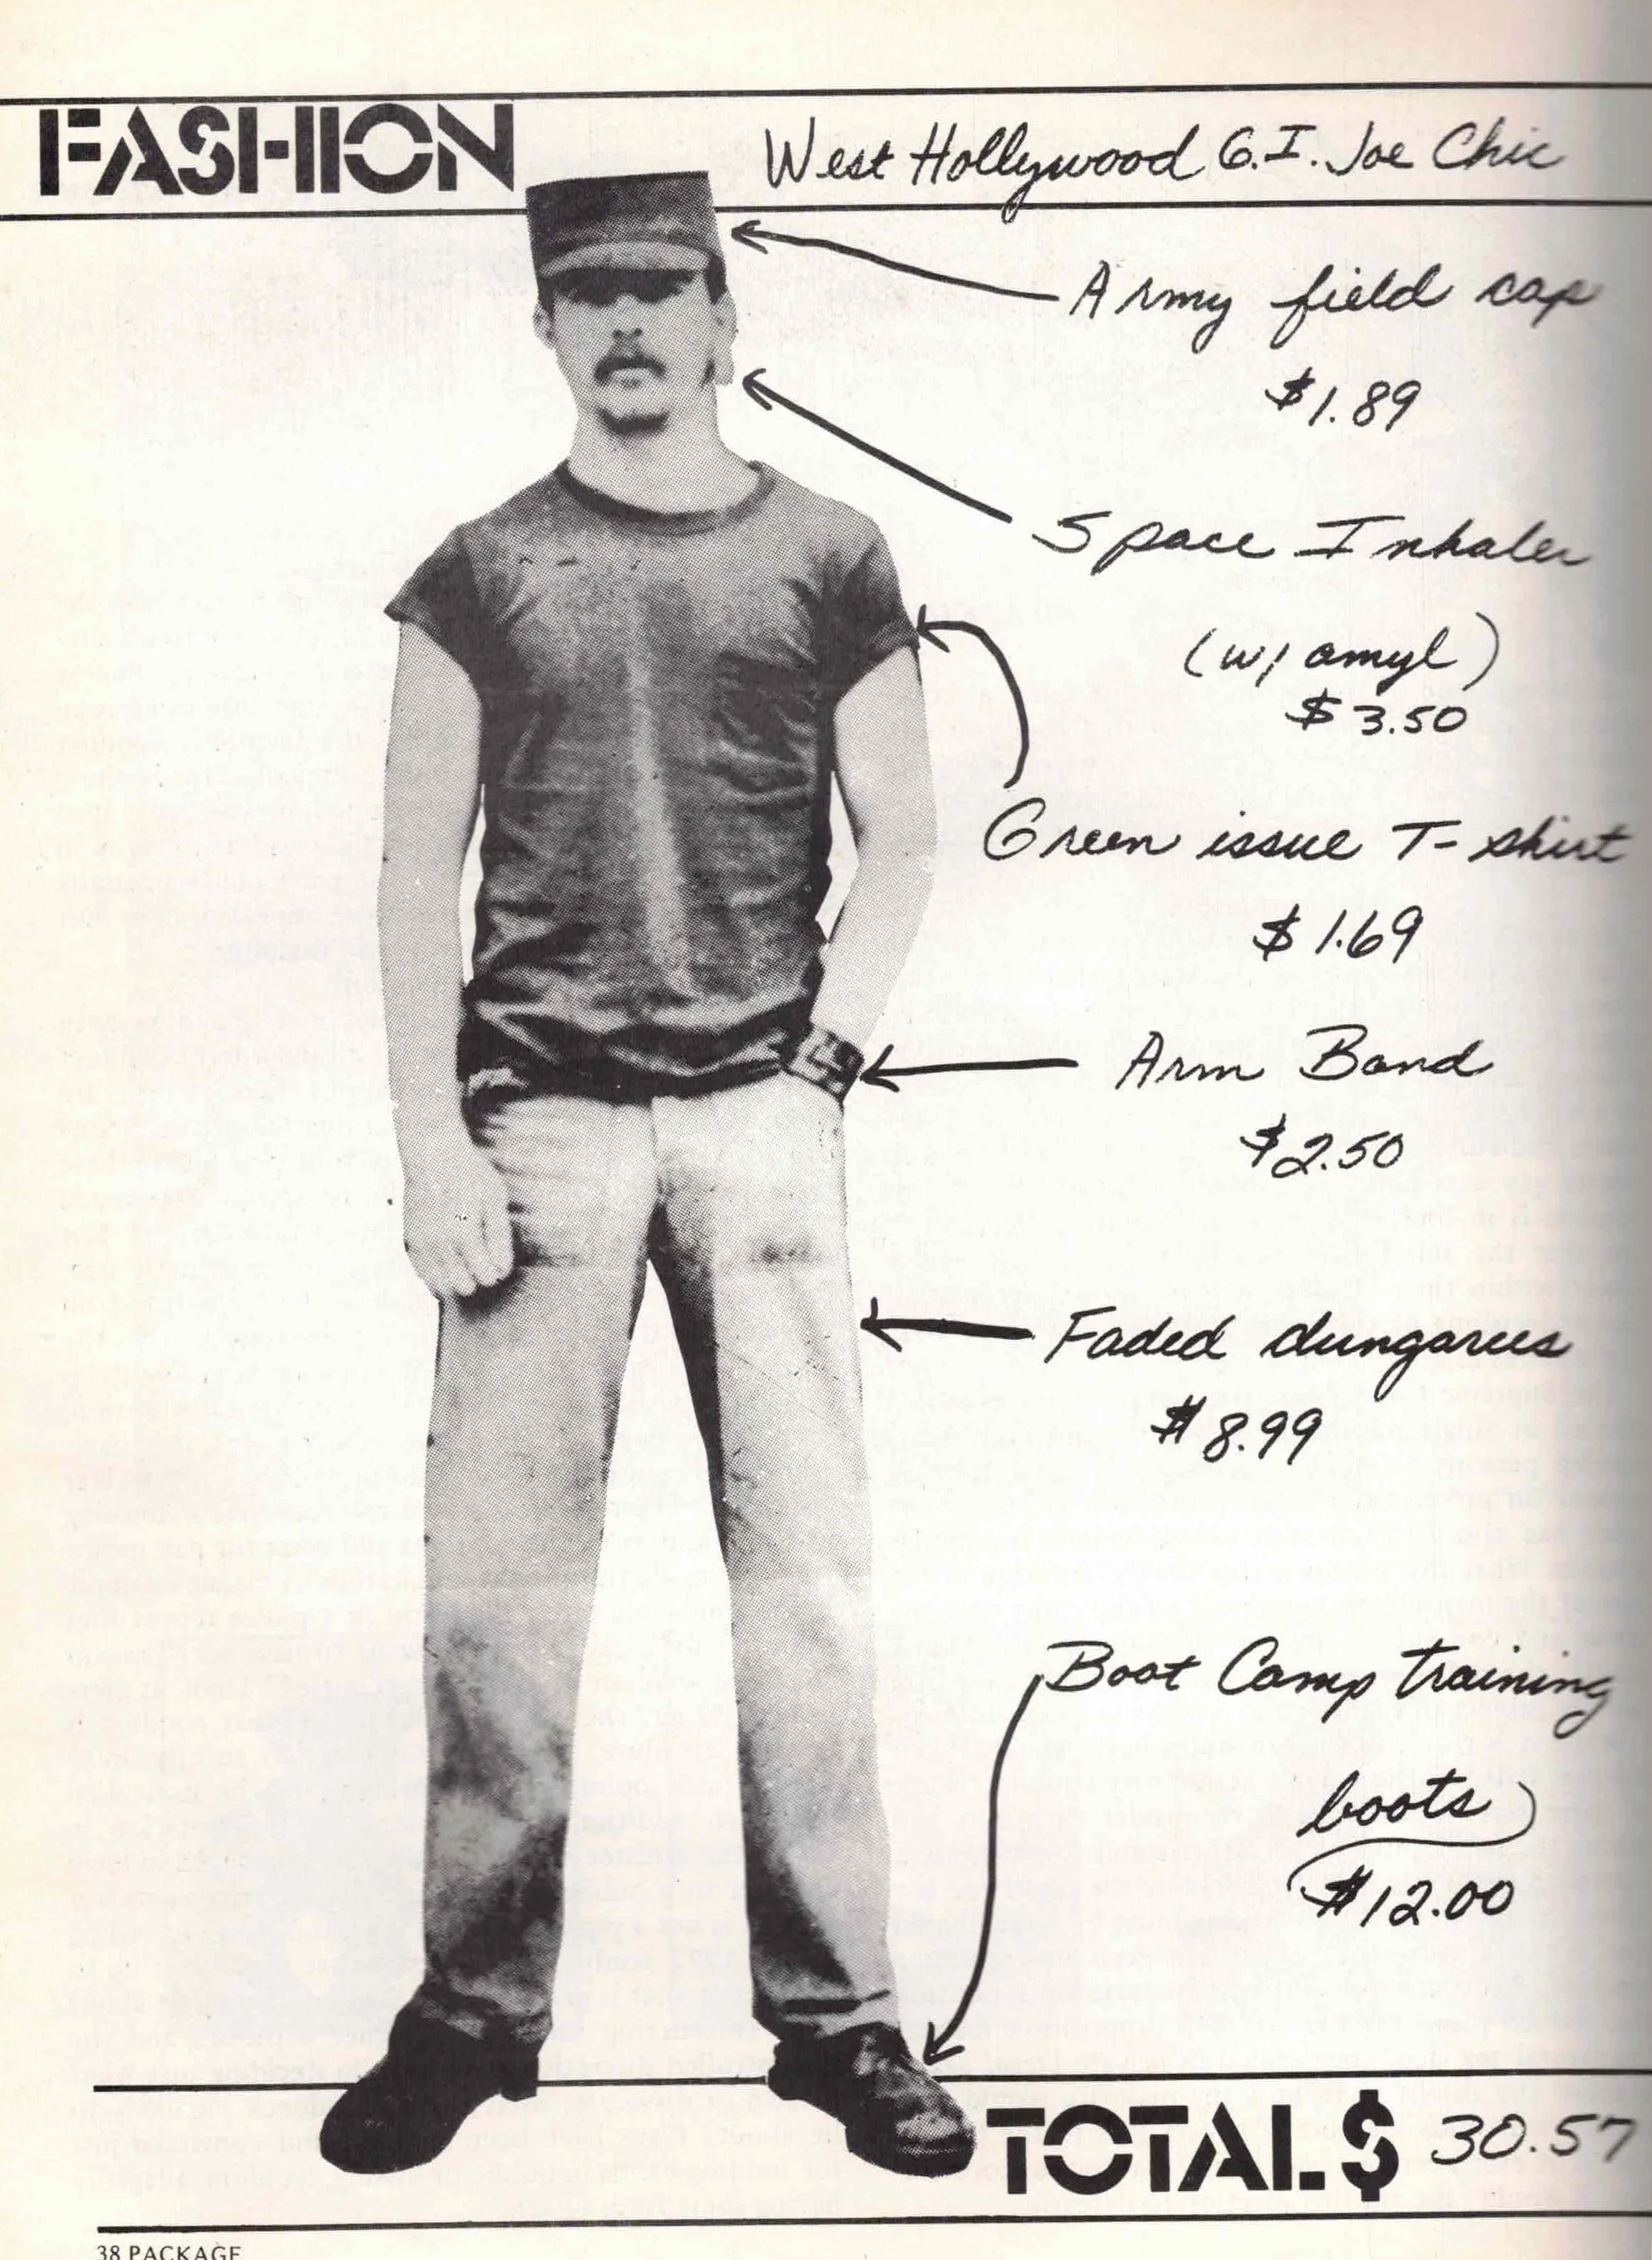 FASHION
West Hollywood G.I. Joe Chic
Army field cap
$1.89
Space Inhaler
(w/ amyl)
$3.50
Green issue T-shirt
$1.69
Arm Band
$2.50
Faded dungarees
$8.99
Boot Camp training
boots
$12.00
TOTAL $ 30.57
38 PACKAGE